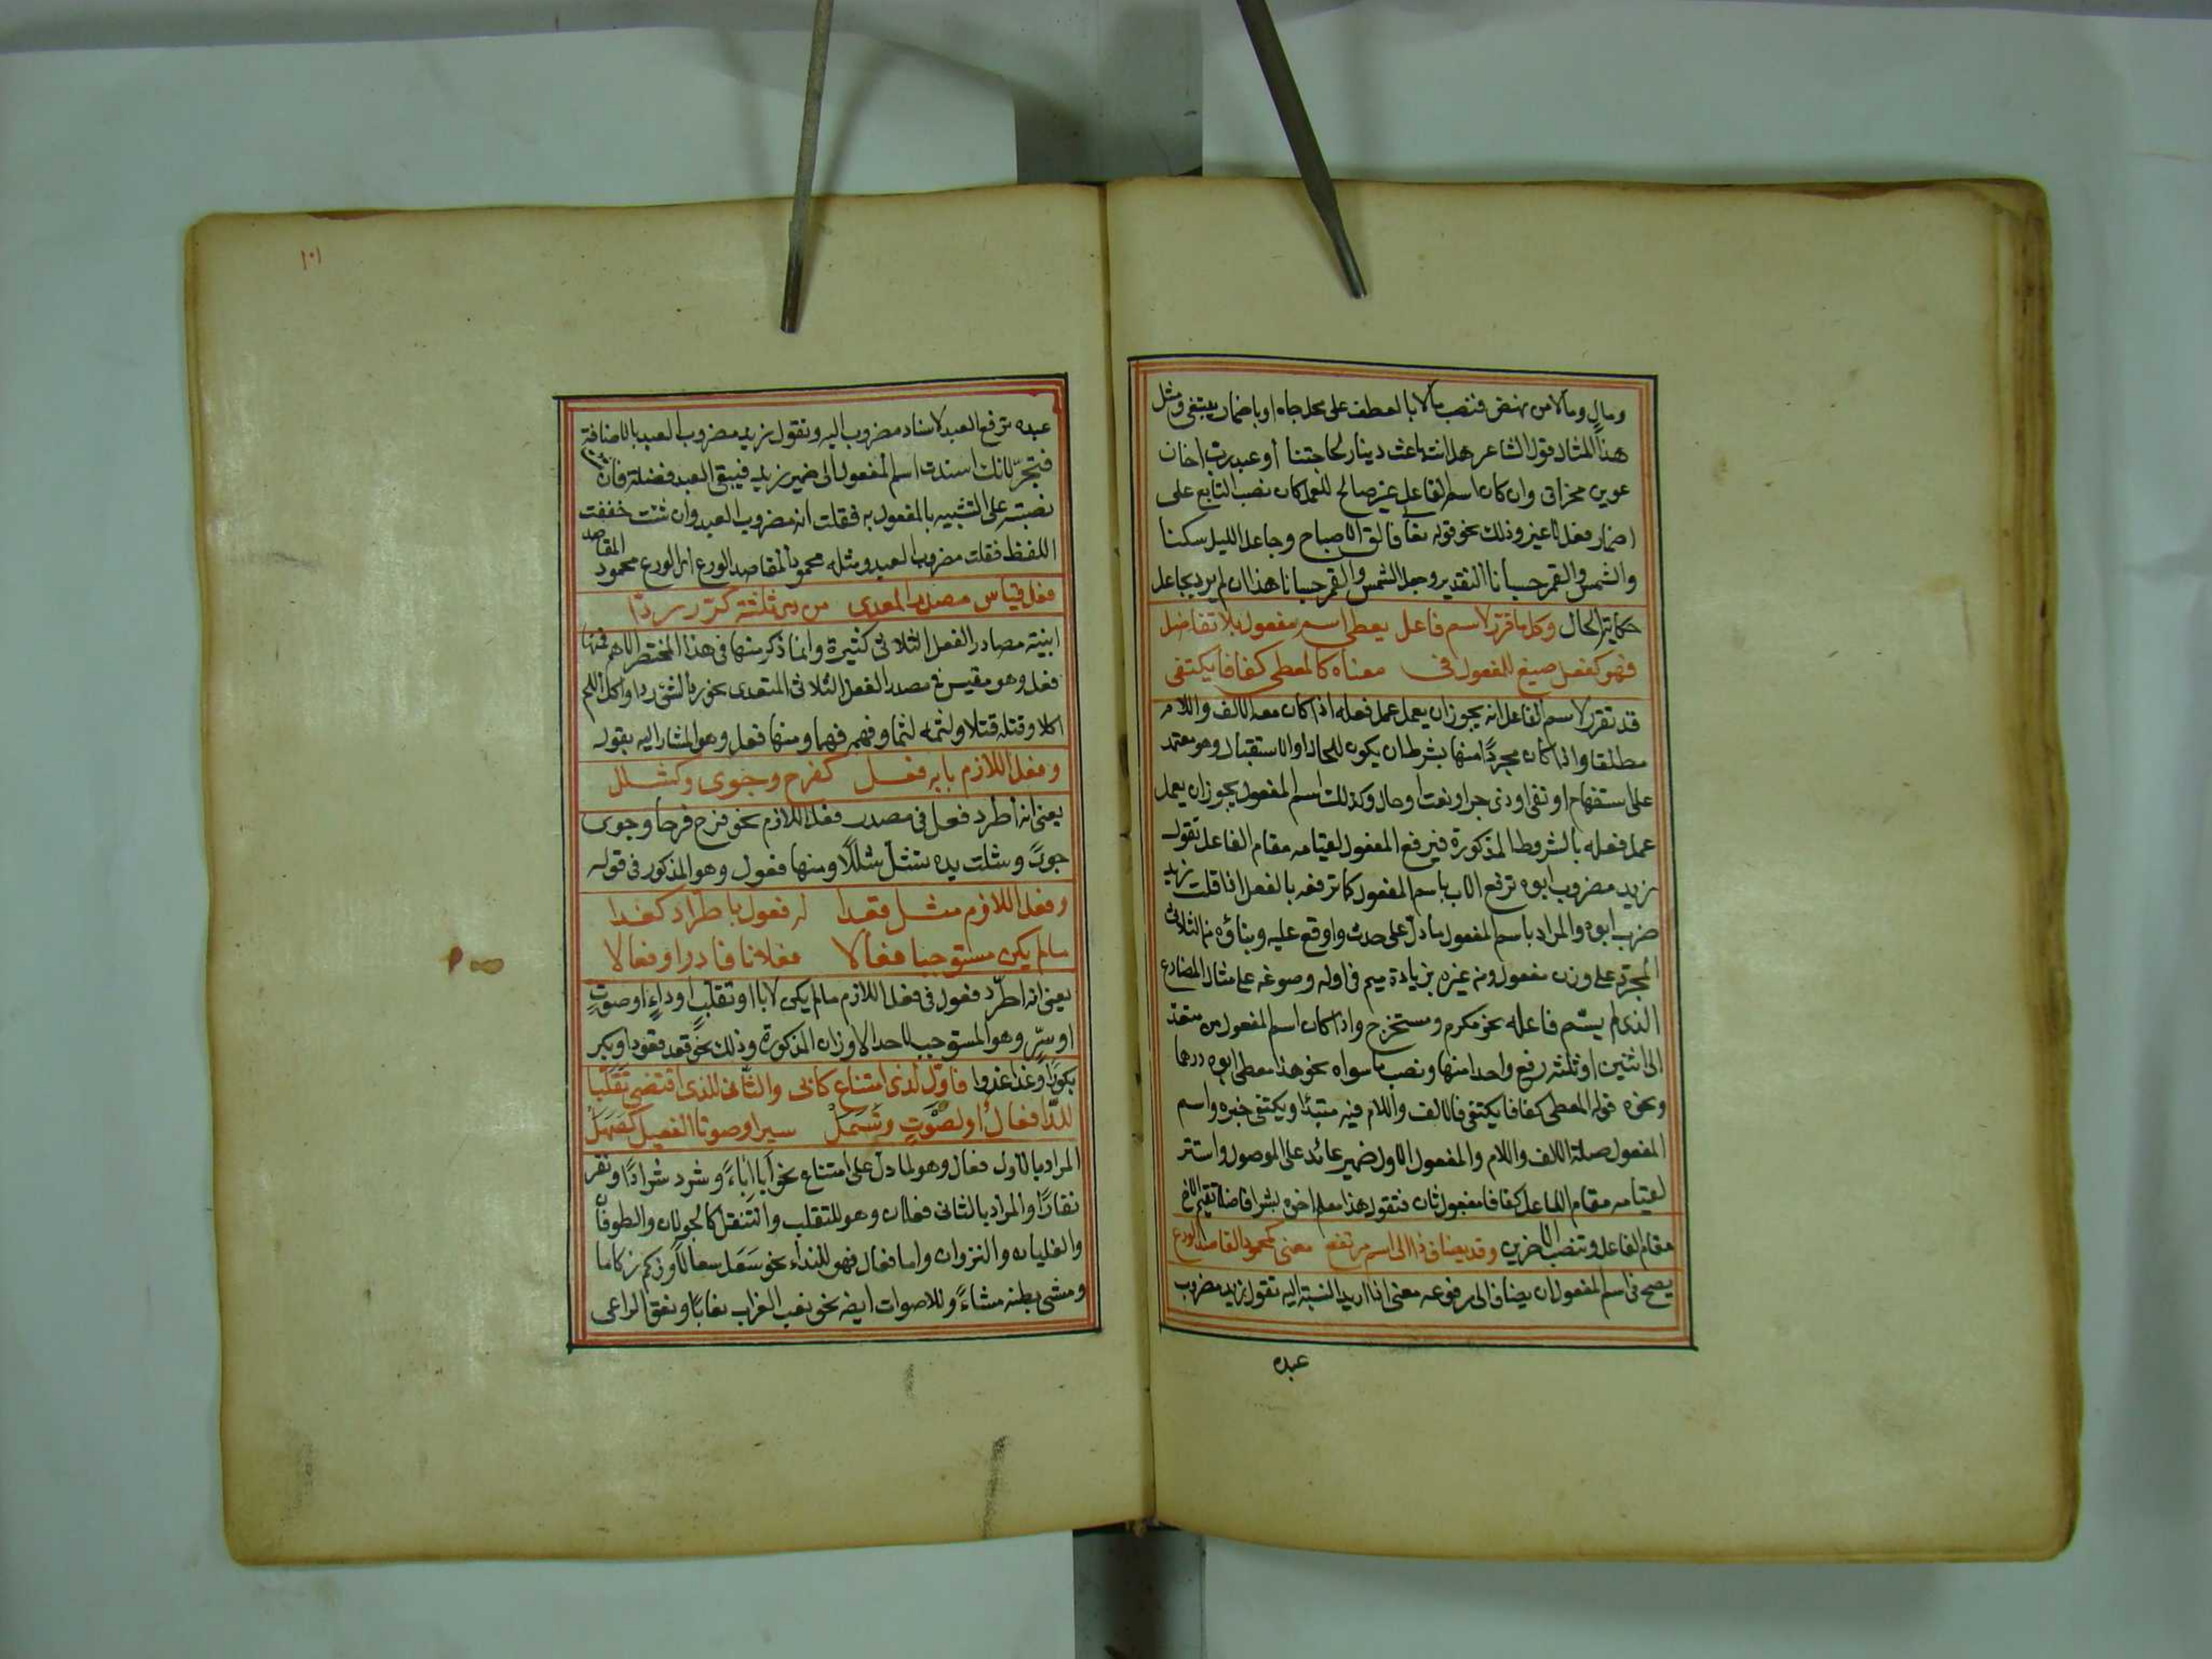 ومال ومالا من نهض فنصب مالا بالعطف على محل جاه او باضمار يبتغي ومثل
هذا المثال قول الشاعر هل انت باعث دينار لحاجتنا أو عبد رب اخا
عون بن مخراق وان كان اسم الفاعل غير صالح للعمل كان نصب التابع على
اضمار فعل لا غير وذلك نحو قوله تعا فالق الاصباح وجاعل الليل سكنا
والشمس والقمر حسبانا التقدير وجعل الشمس والقمر حسبانا هذا ان لم يرد بجاعل
حكاية الحال وكل ما قرر لاسم فاعل يعطى اسم مفعول بلا تفاضل
فهو كفعل صيغ للمفعول في معناه كالمعطى كفافا يكتفى
قد تقرر لاسم الفاعل انه يجوز ان يعمل عمل فعله اذا كان معه الالف واللام
مطلقا واذا كان مجردًا منها بشرط ان يكون للحال او الاستقبال وهو معتمد
على استفهام او نفي او ذي خبر او نعت او حال وكذلك اسم المفعول يجوز ان يعمل
عمل فعله بالشروط المذكورة فيرفع المفعول لقيامه مقام الفاعل تقول
زيد مضروب ابوه ترفع الاب باسم المفعول كما ترفعه بالفعل اذا قلت زيد
ضرب ابوه والمراد باسم المفعول ما دل على حدث واوقع عليه وبناؤه من الثلاثي
المجرد على وزن مفعول ومن غيره بزيادة ميم في اوله وصوغه على مثال المضارع
الذي لم يسم فاعله نحو مكرم ومستخرج واذا كان اسم المفعول من متعد
الى اثنين او ثلثة رفع واحدا منها ونصب ما سواه نحو هذا معطى ابوه درهما
ونحوه قوله المعطى كفافا يكتفى فالالف واللام فيه مبتدا ويكتفى خبره واسم
المفعول صلة الالف واللام والمفعول الاول ضمير عائد على الموصول واستتر
لقيامه مقام الفاعل كفافا مفعول ثان فتقول هذا معلم اخوه بشرا فاضلا تقيم الاخ
مقام الفاعل وتنصب الاخرين وقد يضاف ذا الى اسم مرتفع معنى كمحمود المقاصد الورع
يصح في اسم المفعول ان يضاف الى مرفوعه معنى اذا اريد النسبة اليه تقول زيد مضروب
عبده
١٠١
عبده ترفع العبد لاسناد مضروب اليه وتقول زيد مضروب العبد بالاضافة
فتجرّ لانك اسندت اسم المفعول الى ضمير زيد فيبقى العبد فضلة فان
نصبته على التشبيه بالمفعول به فقلت انه مضروب العبد وان شئت خففت
اللفظ فقلت مضروب العبد ومثله محمود المقاصد الورع اي الورع محمود المقاصد
فعل قياس مصدر المعدى من ذي ثلثة كرد ردا
ابنية مصادر الفعل الثلاثي كثيرة وانما ذكر منها في هذا المختصر الاهم فمنها
فعل وهو مقيس في مصدر الفعل الثلاثي المتعدى نحو رد الشئ ردا واكل اللحم
اكلا وقتله قتلا ولثمه لثما وفهمه فهما ومنها فعل وهو المشار اليه بقوله
وفعل اللازم بابه فعل كفرح وجوى وكشلل
يعني انه اطرد فعل في مصدر فعل اللازم نحو فرح فرحا وجوى
جوىً وشلت يده تشل شللًا ومنها فعول وهو المذكور في قوله
وفعل اللازم مثل قعدا له فعول باطراد كغدا
ما لم يكن مستوجبا فعالا فعلانا فادر او فعالا
يعني انه اطّرد فعول في فعل اللازم ما لم يكن لابا او تقلّبٍ او داءٍ او صوتٍ
او سيرٍ وهو المستوجب لاحد الاوزان المذكورة وذلك نحو قعد قعودا وبكر
بكورًا وغدا غدوا فاول لذي امتناع كابى والثّانِ للذي اقتضى تقلّبا
للدّا فعالٌ او لصَوتٍ وشَمَلْ سيرا وصوتا الفعيل كصَهَلْ
المراد بالاول فعال وهو لما دل على امتناع نحو أبا اباءً وشرد شرادًا ونفر
نفارًا والمراد بالثاني فعلان وهو للتقلب والتنقل كالجولان والطوفان
والغليان والنزوان واما فعال فهو للداء نحو سَعَل سعالًا وزكم زكاما
ومشى بطنه مشاءً وللاصوات ايضا نحو نعب الغراب نعابًا ونعق الراعي